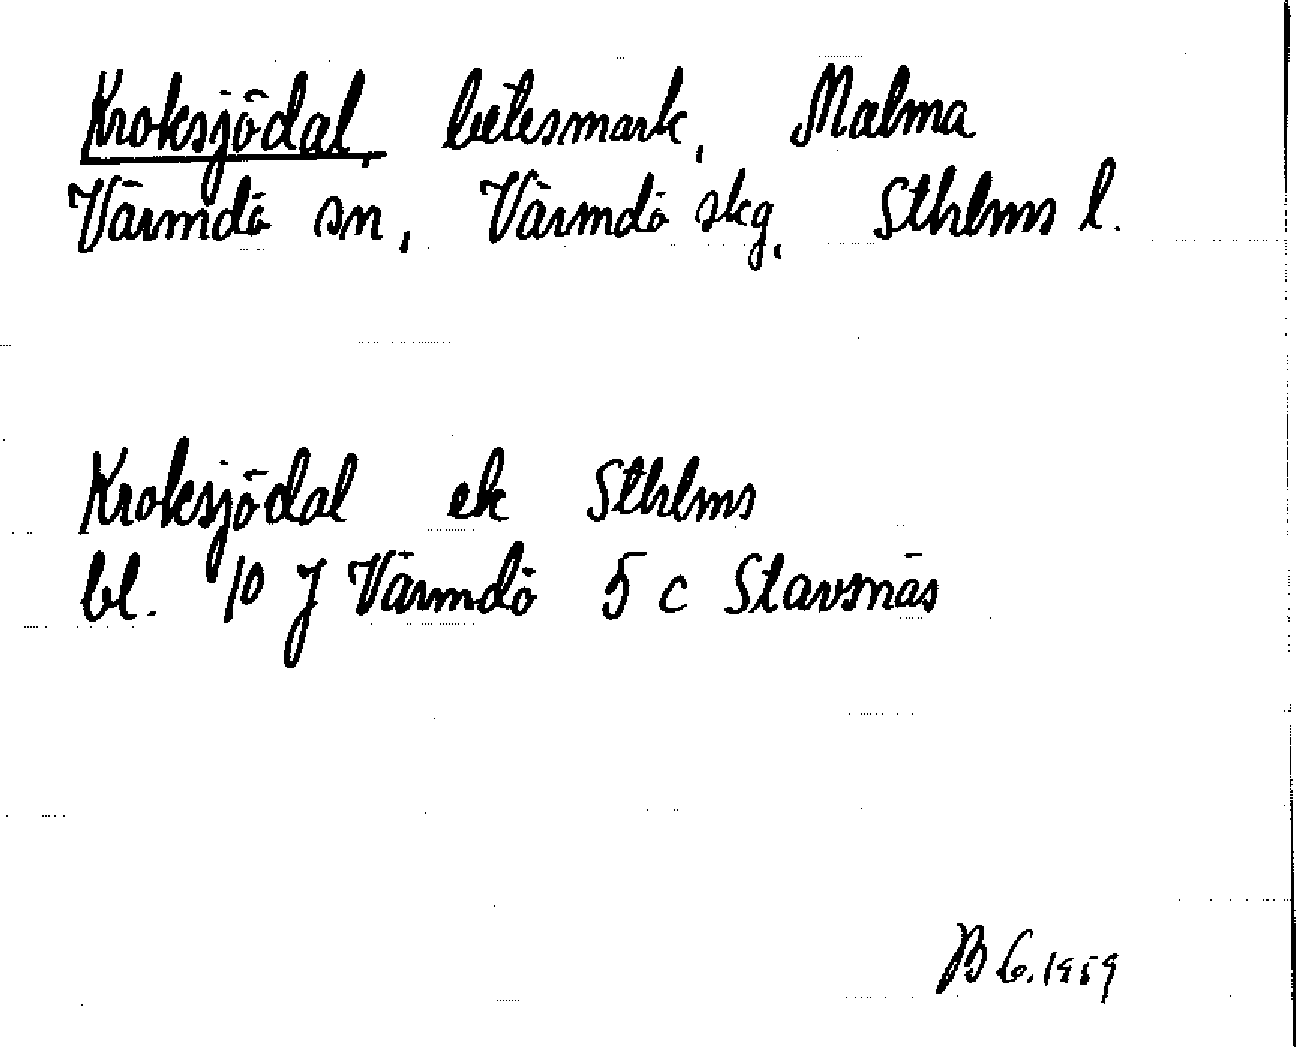 Kroksjödal, betesmark, Malma
Värmdö sn, Värmdö skg, Sthlms l.
Kroksjödal ek Sthlms
bl. 10 J Värmdö 5 c Stavsnäs
B G. 1959